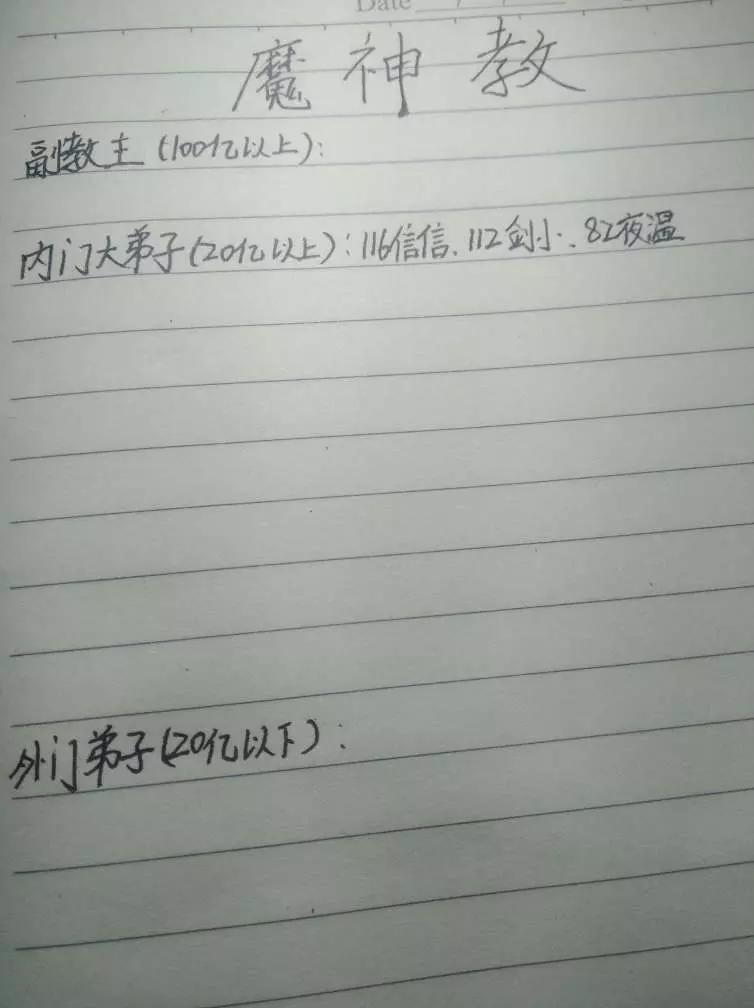 Date / /
魔神教
副教主(100亿以上):
内门大弟子(20亿以上):116信信、112剑小、82夜温
外门弟子(20亿以下):